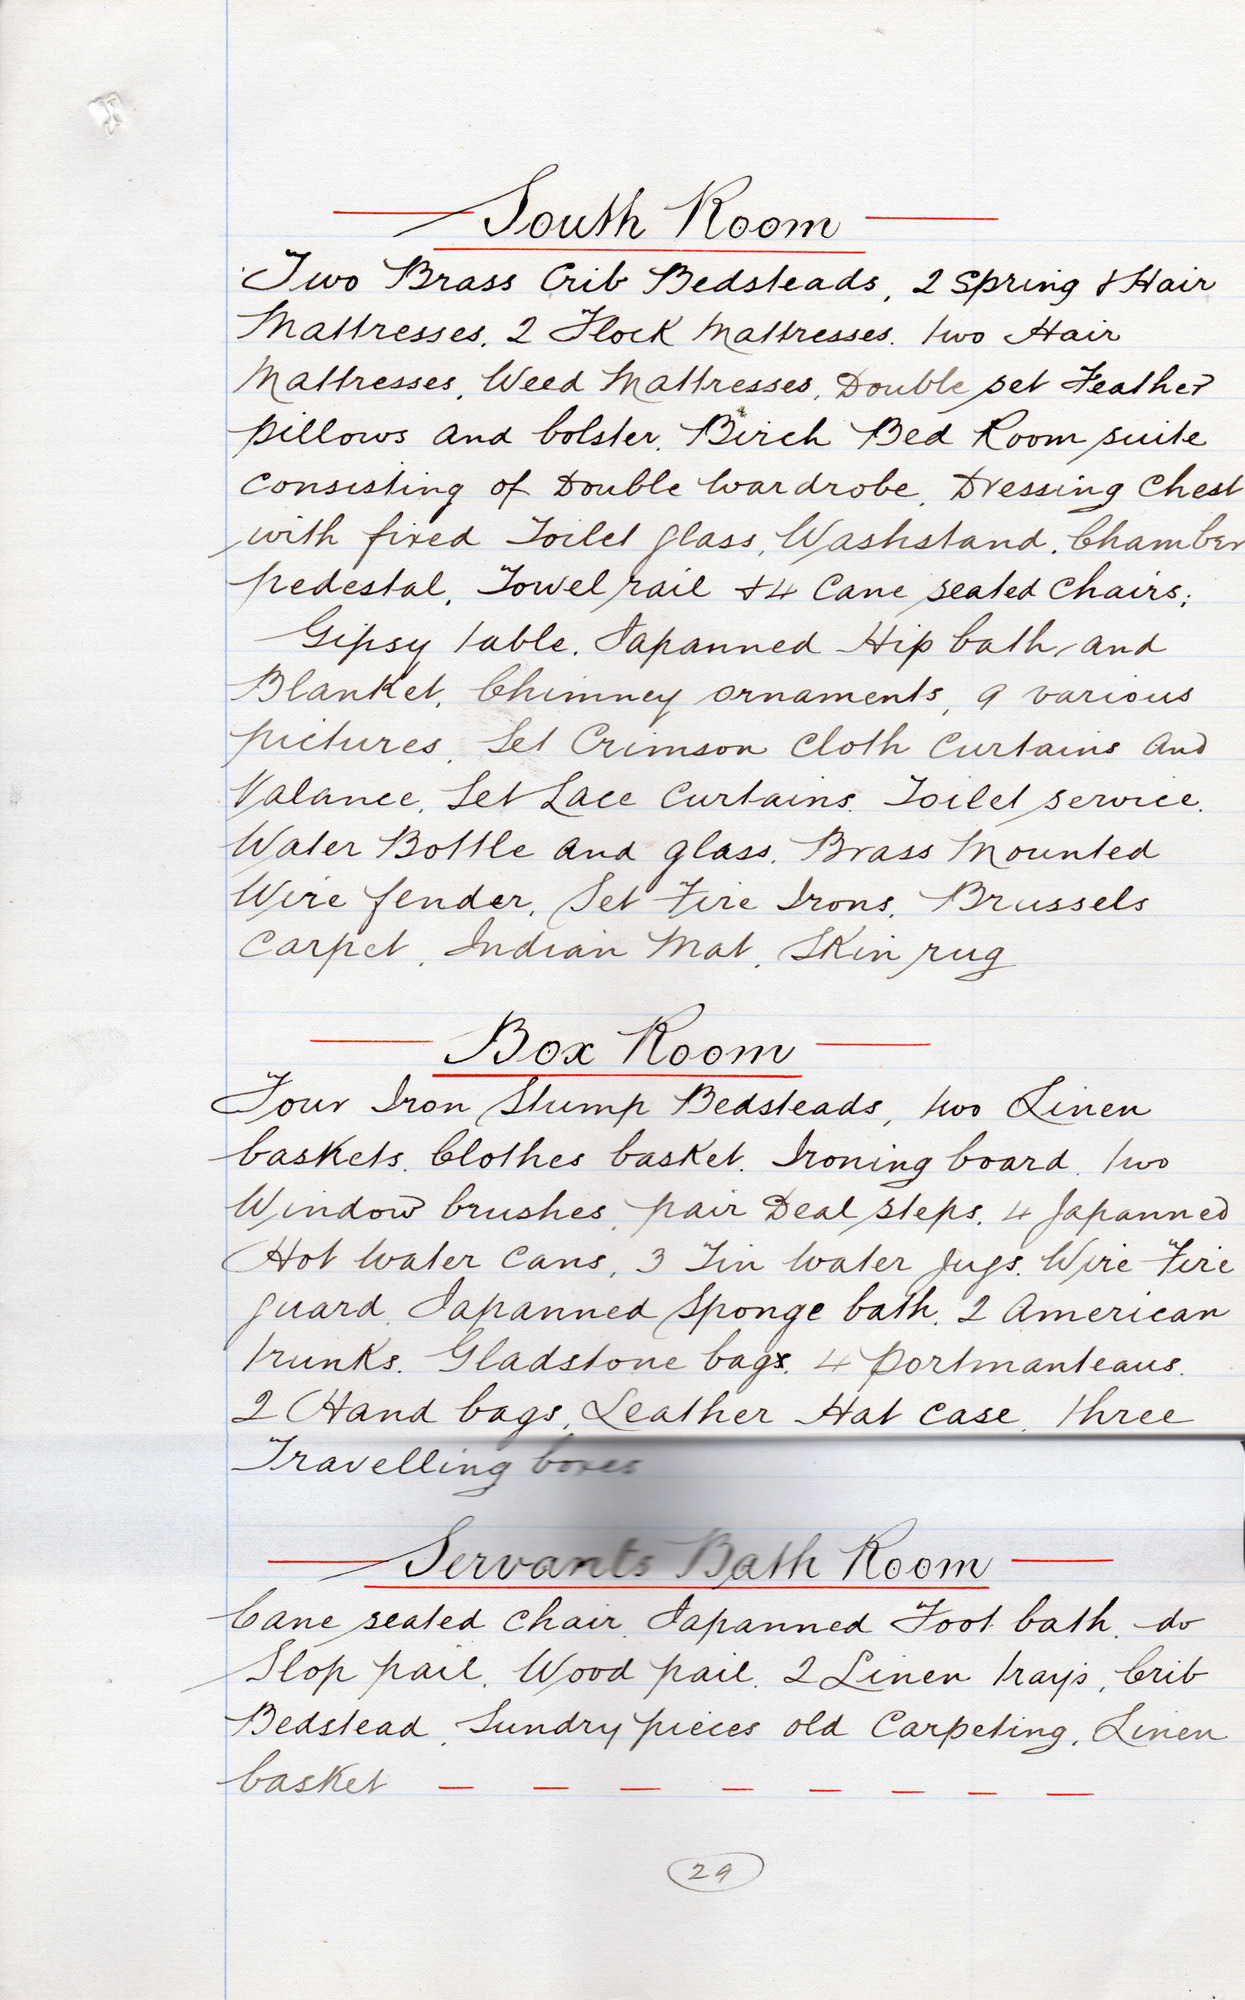 South Room
Two Brass Crib Bedsteads, 2 Spring & Hair
Mattresses. 2 Flock Mattresses. two Hair
Mattresses, Weed Mattresses, Double set Feather
pillows and bolster. Birch Bed Room suite
consisting of Double wardrobe, Dressing Chest
with fixed Toilet glass, Washstand. Chamber
pedestal, Towel rail & 4 Cane seated Chairs;
Gipsy table. Japanned Hip bath and
Blanket, Chimney ornaments, 9 various
pictures, Set Crimson Cloth Curtains and
Valance, Set Lace Curtains. Toilet service.
Water Bottle and glass. Brass Mounted
Wire fender, Set Fire Irons, Brussels
Carpet, Indian Mat, Skin rug
Box Room
Four Iron Stump Bedsteads, two Linen
baskets. Clothes basket. Ironing board. two
Window brushes, pair Deal steps. 4 Japanned
Hot water Cans, 3 Tin water jugs. Wire Fire
guard. Japanned Sponge bath. 2 American
trunks. Gladstone bags. 4 portmanteaus.
2 Hand bags, Leather Hat case, three
Travelling boxes
Servants Bath Room
Cane seated Chair. Japanned Foot bath. do
Slop pail. Wood pail. 2 Linen trays, Crib
Bedstead, Sundry pieces old Carpeting, Linen
basket
29